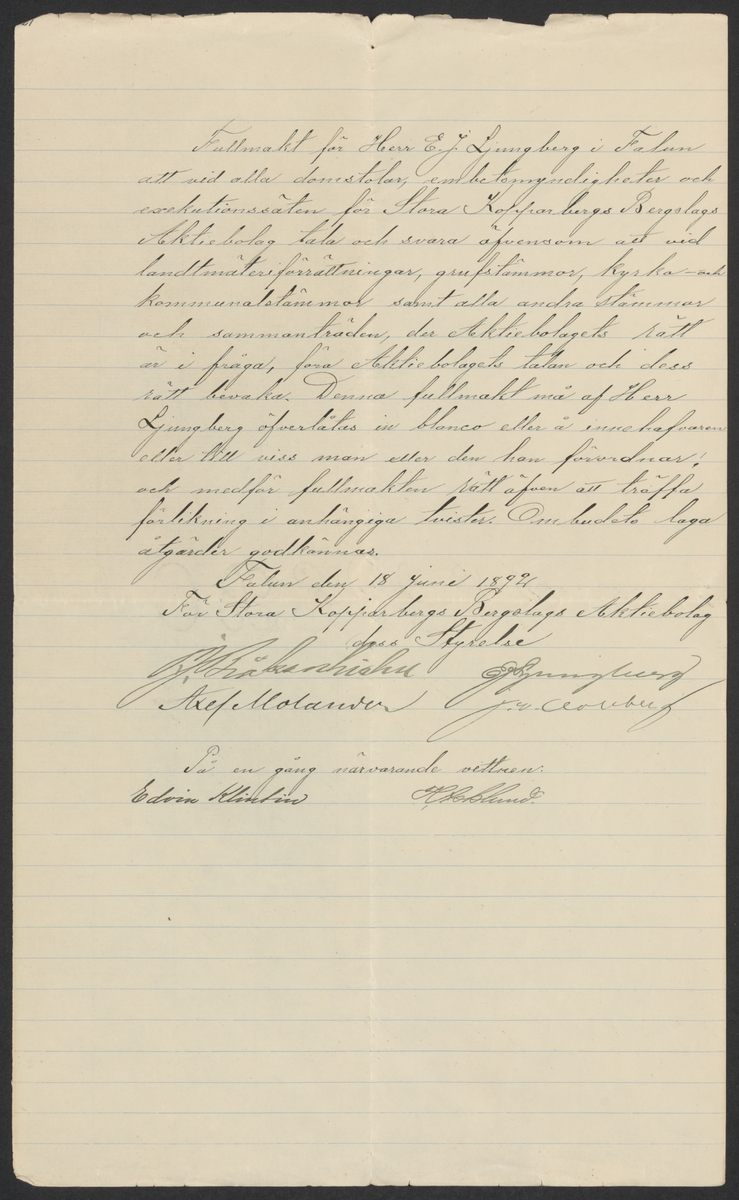 Fullmakt för Herr E. J. Ljungberg i Falun
att vid alla domstolar, embetsmyndigheter och
exekutionssäten för Stora Kopparbergs Bergslags
Aktiebolag tala och svara äfvensom att vid
landtmäteriförrättningar, grufstämmor, kyrko- och
kommunalstämmor samt alla andra stämmor
och sammanträden, der Aktiebolagets rätt
är i fråga, föra Aktiebolagets talan och dess
rätt bevaka. Denna fullmakt må af Herr
Ljungberg öfverlåtas in blanco eller å innehafvaren
eller till viss man eller den han förordnar;
och medför fullmakten rätt äfven att träffa
förlikning i anhängiga tvister. Ombudets laga
åtgärder godkännas.
Falun den 18 juni 1892
För Stora Kopparbergs Bergslags Aktiebolag
dess Styrelse
E J Ljungberg
Axel Molander
På en gång närvarande vittnen:
Edvin Klintin